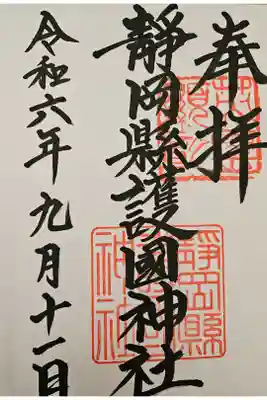 奉拝
靜岡縣護國神社
令和六年九月十一日